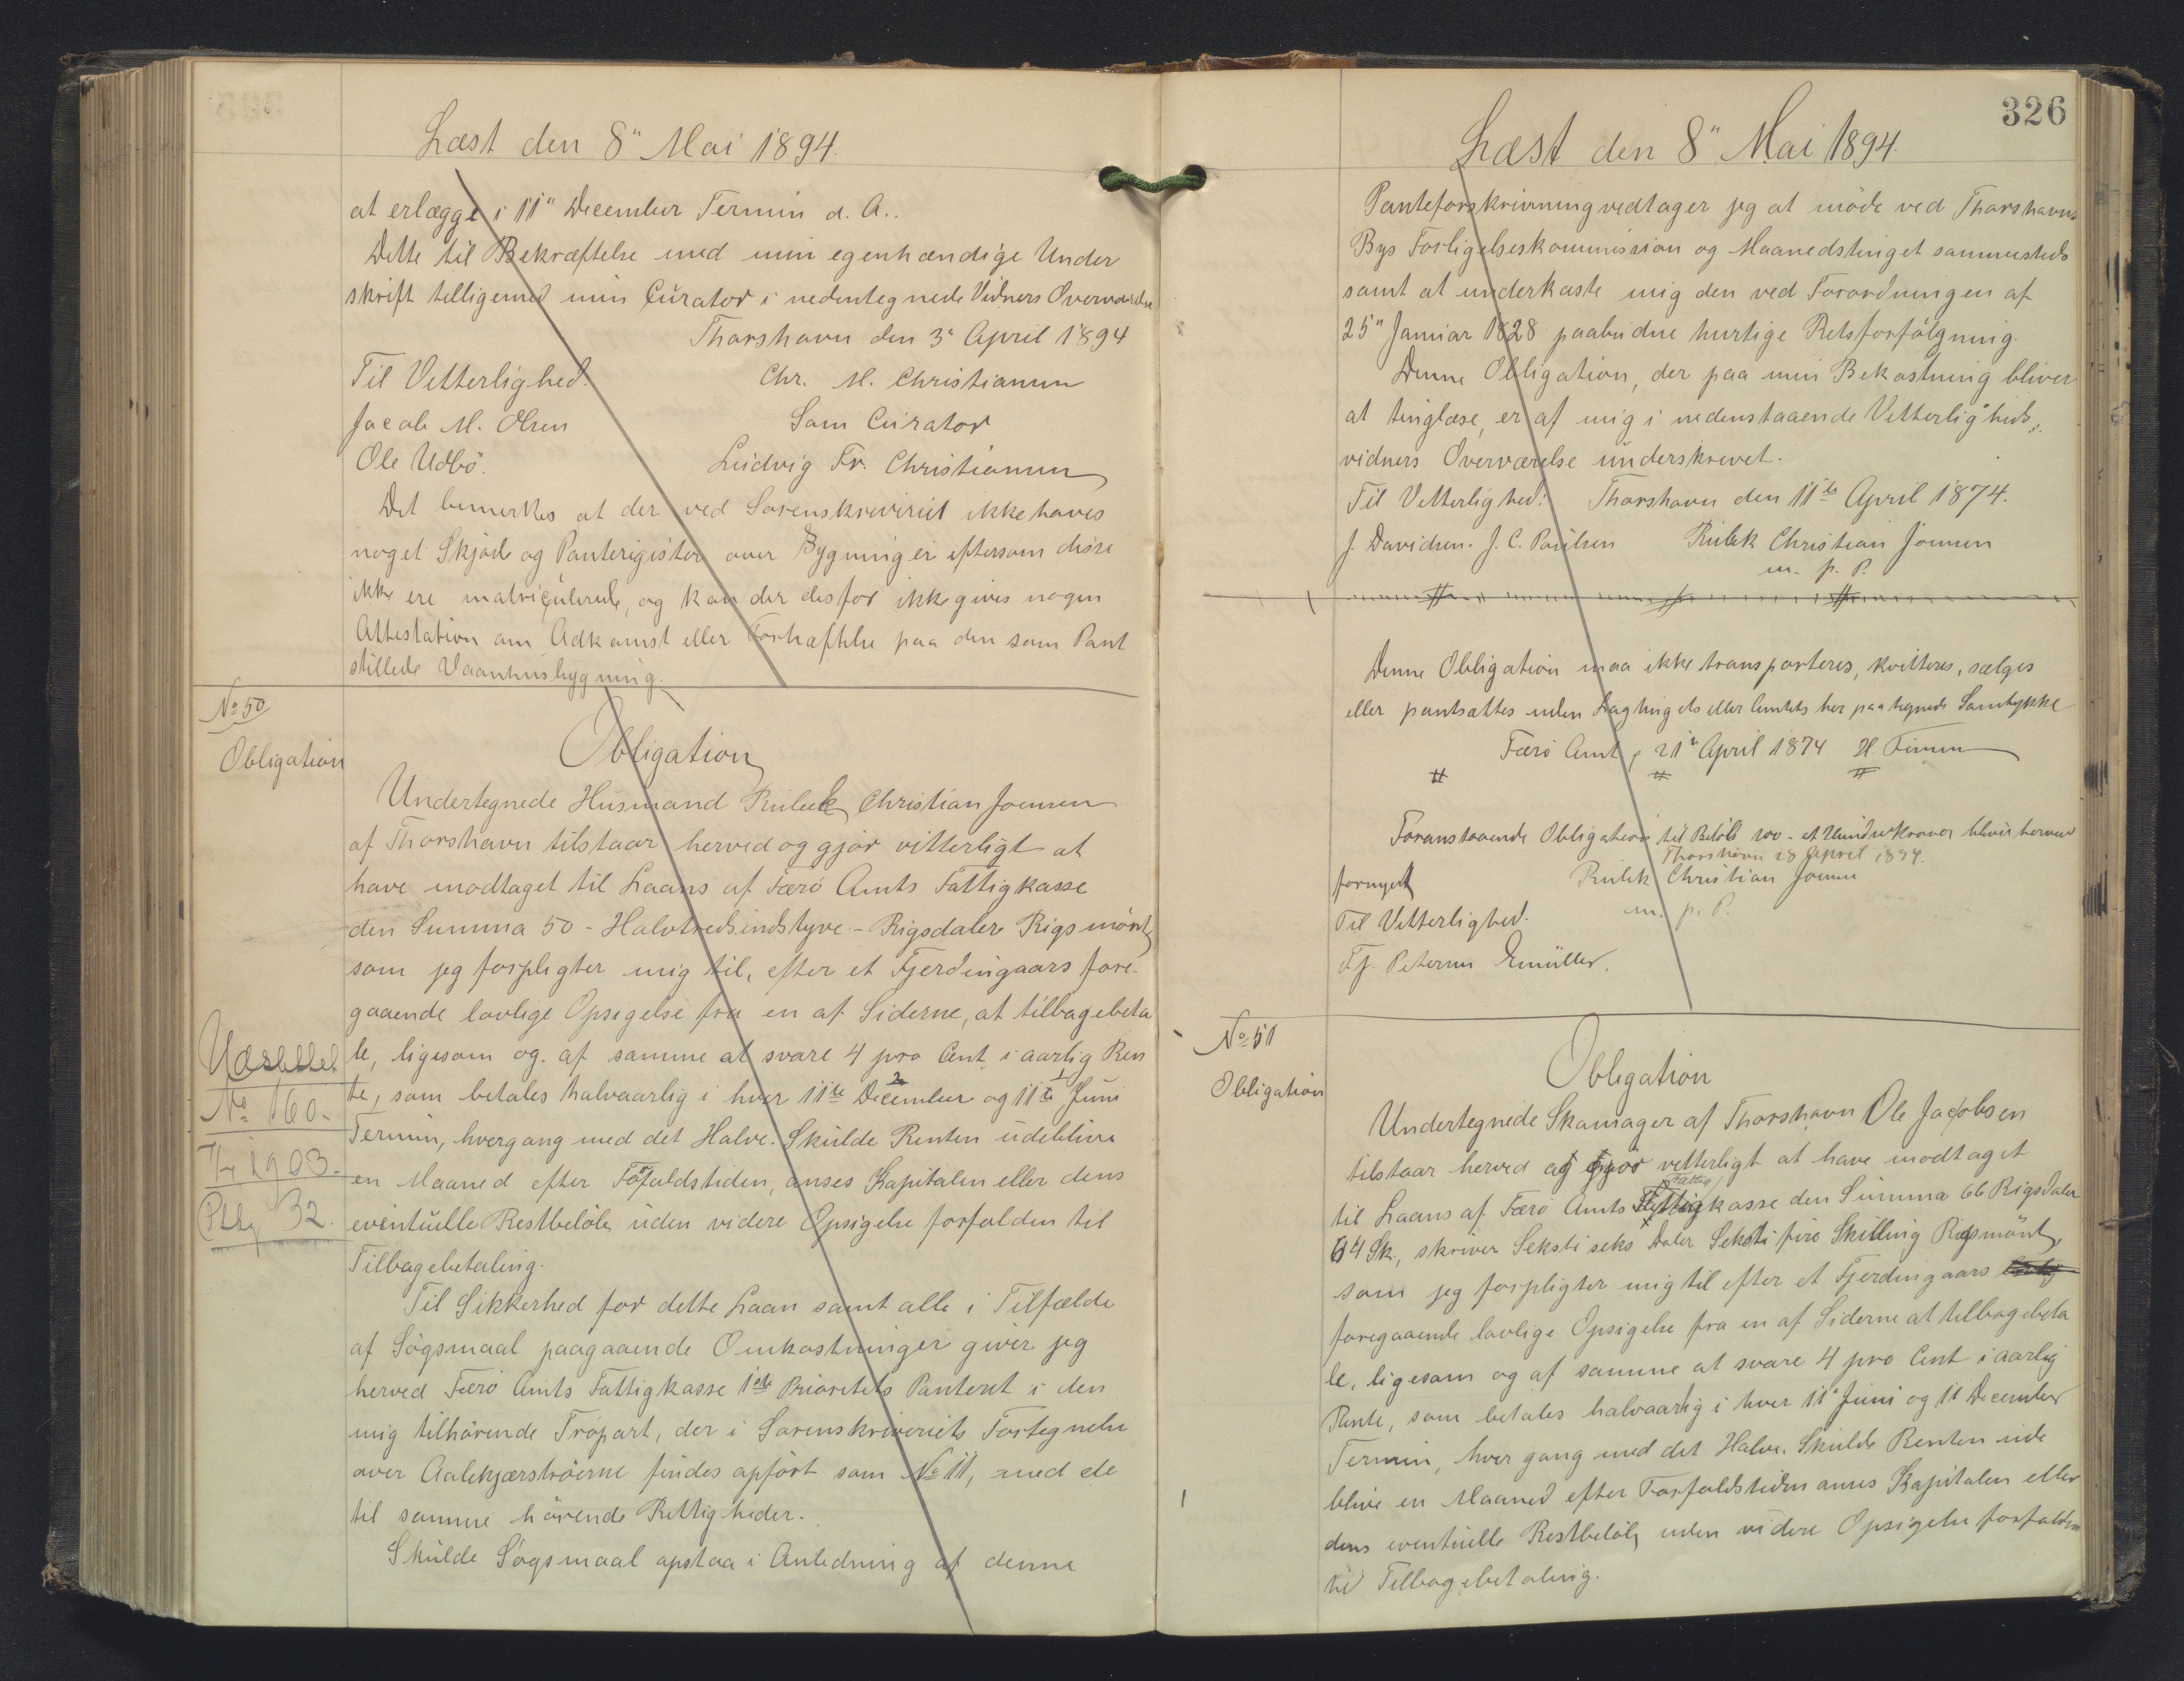 Læst den 8" Mai 1894.
at erlægge i 11" December Termin d. A..
Dette til Bekræftelse med min egenhændige Under
skrift tilligemed min Curator i nedentegnede Vidners Overværelse
Thorshavn den 3" April 1894
Til Vitterlighed. Chr. M. Christiansen
Jacob M. Olsen Som Curator
Ole Udbö. Ludvig Fr. Christiansen
Det bemerkes at der ved Sorenskriveriet ikke haves
noget Skjöde og Panteregister over Bygninger eftersom disse
ikke ere matriculerede, og kan der desfor ikke gives nogen
Attestation om Adkomst eller Forhæftelse paa den som Pant
stillede Vaanhusbygning.
No 50
Obligation
Obligation
Undertegnede Husmand Rubek Christian Joensen
af Thorshavn tilstaar herved og gjör vitterligt at
have modtaget til Laans af Færö Amts Fattigkasse
den Summa 50 - Halvtredsindstyve - Rigsdaler Rigsmönt,
som jeg forpligter mig til, efter et Fjerdingaars fore-
gaaende lovlige Opsigelse fra en af Siderne, at tilbagebeta
le, ligesom og af samme at svare 4 pro Cent i aarlig Ren
te, som betales halvaarlig i hver 11te December og 11te Juni
Termin, hvergang med det Halve. Skulde Renten udeblive
en Maaned efter Fofaldstiden, anses Kapitalen eller dens
eventuelle Restbelöb uden videre Opsigelse forfalden til
Tilbagebetaling.
Til Sikkerhed for dette Laan samt alle i Tilfælde
af Sögsmaal paagaaende Omkostninger giver jeg
herved Færö Amts Fattigkasse 1ste Prioritets Panteret i den
mig tilhörende Tröpart, der i Sorenskriveriets Fortegnelse
over Aalekjærströerne findes opfört som No 11, med de
til samme hörende Rettigheder.
Skulde Sögsmaal opstaa i Anledning af denne
Udslettet
No 160.
1903.
32.
326
Læst den 8" Mai 1894.
Panteforskrivning vedtager jeg at möde ved Thorshavns
Bys Forligelseskommission og Maanedstinget sammesteds
samt at underkaste mig den ved Forordningen af
25" Januar 1828 paabudne hurtige Retsforfölgning.
Denne Obligation, der paa min Bekostning bliver
at tinglæse, er af mig i nedenstaaende Vitterligheds
vidners Overværelse underskrevet.
Til Vitterlighed: Thorshavn den 11te April 1874.
J. Davidsen. J. C. Poulsen Rubek Christian Joensen
m. p. P.
Denne Obligation maa ikke transporteres, kvitteres, sælges
eller pantsættes uden Lagtingets eller Amtets her paategnede Samtykke
Færö Amt, 21" April 1874 H. Finsen
Foranstaaende Obligation til Belöb 100 - et Hundrekroner bliver herved
Thorshavn 28 April 1894.
fornyet Rubek Christian Joensen
Til Vitterlighed. m. p. P.
F. J. Petersen Emüller.
No 51
Obligation
Obligation
Undertegnede Skomager af Thorshavn Ole Jacobsen
tilstaar herved og gjör vitterligt at have modtaget
til Laans af Færö Amts Fattigkasse den Summa 66 Rigsdaler
64 Sk., skriver Seksti seks Daler Seksti fire Skilling Rigsmönt,
som jeg forpligter mig til efter et Fjerdingaars
foregaaende lovlige Opsigelse fra en af Siderne at tilbagebeta
le, ligesom og af samme at svare 4 pro Cent i aarlig
Rente, som betales halvaarlig i hver 11" Juni og 11 December
Termin, hver gang med det Halve. Skulde Renten ude
blive en Maaned efter Forfaldstiden anses Kapitalen eller
dens eventuelle Restbelöb uden videre Opsigelse forfalden
til Tilbagebetaling.